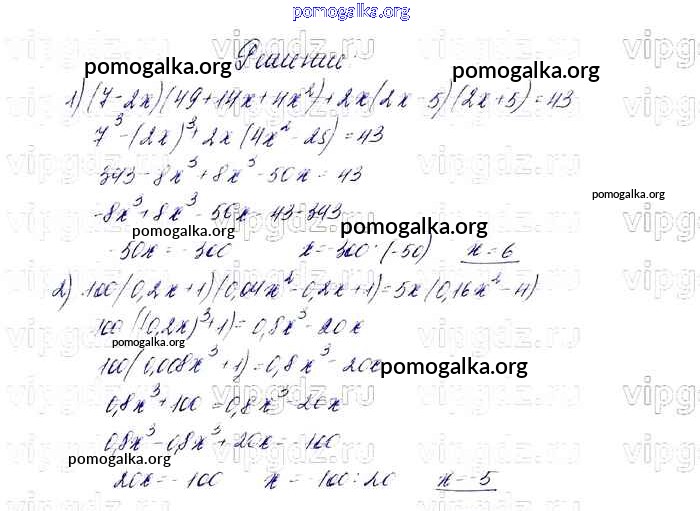 pomogalka.org
Решение.
pomogalka.org pomogalka.org
1) (7-2x)(49+14x+4x²)+2x(2x-5)(2x+5)=43
7³-(2x)³+2x(4x²-25)=43
343-8x³+8x³-50x=43
pomogalka.org
-8x³+8x³-50x=43-343
pomogalka.org pomogalka.org
-50x=-300 x=-300:(-50) x=6
2) 100(0,2x+1)(0,04x²-0,2x+1)=5x(0,16x²-4)
100((0,2x)³+1)=0,8x³-20x
pomogalka.org
100(0,008x³+1)=0,8x³-20x
pomogalka.org
0,8x³+100=0,8x³-20x
0,8x³-0,8x³+20x=-100
pomogalka.org
20x=-100 x=-100:20 x=-5
vipgdz.ru